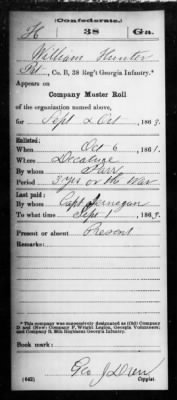 (Confederate.)
H 38 Ga.
William Hunter
Pvt., Co. B, 38 Reg't Georgia Infantry.*
Appears on
Company Muster Roll
of the organization named above,
for Sept & Oct, 1863.
Enlisted:
When Oct 6, 1861.
Where Decatur
By whom
Period 3 yrs or the War
Last paid:
By whom Capt
To what time Sept 1, 186
Present or absent Present
Remarks:
* This company was successively designated as (Old) Company
D and (New) Company F, Wright Legion, Georgia Volunteers;
and Company B, 38th Regiment Georgia Infantry.
Book mark:
Geo J
(642) Copyist.